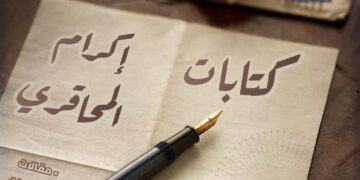 كتابات
إكرام
المحاقري
• مقالات